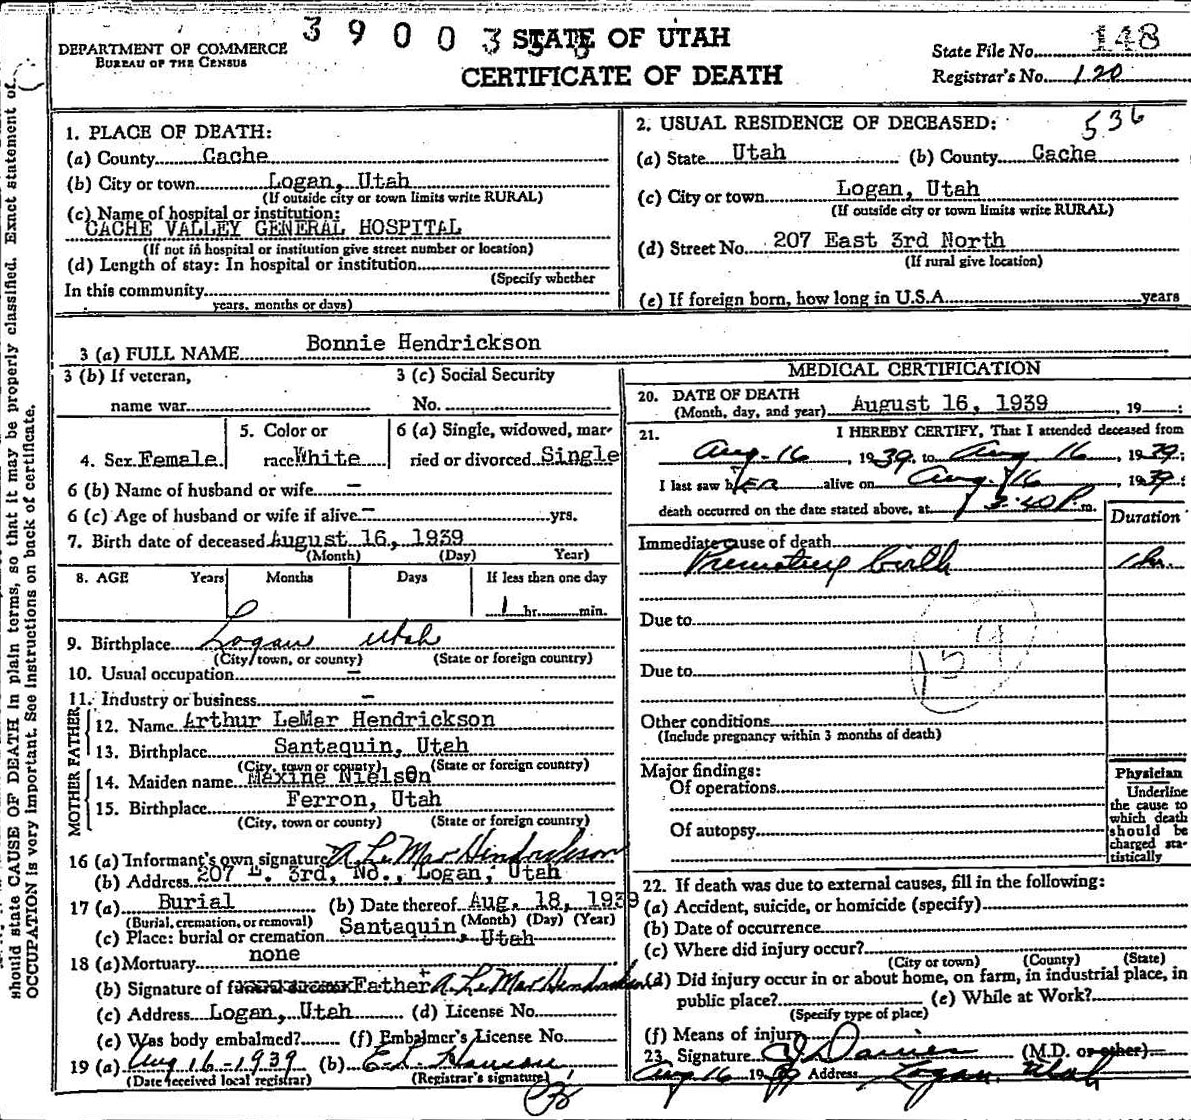 3 9 0 0 3 5 8
DEPARTMENT OF COMMERCE
BUREAU OF THE CENSUS
STATE OF UTAH
CERTIFICATE OF DEATH
State File No. 148
Registrar's No. 120
should state CAUSE OF DEATH in plain terms, so that it may be properly classified. Exact statement of
OCCUPATION is very important. See instructions on back of certificate.
1. PLACE OF DEATH:
(a) County Cache
(b) City or town Logan, Utah
(If outside city or town limits write RURAL)
(c) Name of hospital or institution:
CACHE VALLEY GENERAL HOSPITAL
(If not in hospital or institution give street number or location)
(d) Length of stay: In hospital or institution
(Specify whether
In this community
years, months or days)
2. USUAL RESIDENCE OF DECEASED: 536
(a) State Utah (b) County Cache
(c) City or town Logan, Utah
(If outside city or town limits write RURAL)
(d) Street No. 207 East 3rd North
(If rural give location)
(e) If foreign born, how long in U.S.A. years
3 (a) FULL NAME Bonnie Hendrickson
3 (b) If veteran, 3 (c) Social Security
name war No.
4. Sex Female 5. Color or race White 6 (a) Single, widowed, married or divorced Single
6 (b) Name of husband or wife —
6 (c) Age of husband or wife if alive — yrs.
7. Birth date of deceased August 16, 1939
(Month) (Day) Year)
8. AGE Years Months Days If less than one day
1 hr. min.
9. Birthplace Logan Utah
(City, town, or county) (State or foreign country)
10. Usual occupation —
11. Industry or business —
FATHER
12. Name Arthur LeMar Hendrickson
13. Birthplace Santaquin, Utah
(City, town or county) (State or foreign country)
MOTHER
14. Maiden name Maxine Nielson
15. Birthplace Ferron, Utah
(City, town or county) (State or foreign country)
16 (a) Informant's own signature A. LeMar Hendrickson
(b) Address 207 E. 3rd, No., Logan, Utah
17 (a) Burial (b) Date thereof Aug. 18, 1939
(Burial, cremation, or removal) (Month) (Day) (Year)
(c) Place: burial or cremation Santaquin, Utah
18 (a) Mortuary none
(b) Signature of funeral director Father + A. LeMar Hendrickson
(c) Address Logan, Utah (d) License No.
(e) Was body embalmed? (f) Embalmer's License No.
19 (a) Aug 16-1939 (b) E. L. Hanson
(Date received local registrar) (Registrar's signature)
MEDICAL CERTIFICATION
20. DATE OF DEATH
(Month, day, and year) August 16, 1939, 19
21. I HEREBY CERTIFY, That I attended deceased from
Aug. 16, 1939, to Aug 16, 1939;
I last saw h ER alive on Aug. 16, 1939;
death occurred on the date stated above, at 3:40 P. m.
Duration
Immediate cause of death
Premature birth 1 hr.
Due to
159
Due to
Other conditions
(Include pregnancy within 3 months of death)
Major findings:
Of operations
Of autopsy
Physician
Underline
the cause to
which death
should be
charged sta-
tistically
22. If death was due to external causes, fill in the following:
(a) Accident, suicide, or homicide (specify)
(b) Date of occurrence
(c) Where did injury occur?
(City or town) (County) (State)
(d) Did injury occur in or about home, on farm, in industrial place, in
public place? (e) While at Work?
(Specify type of place)
(f) Means of injury
23. Signature (M.D. or other)
Aug 16 1939 Address Logan, Utah